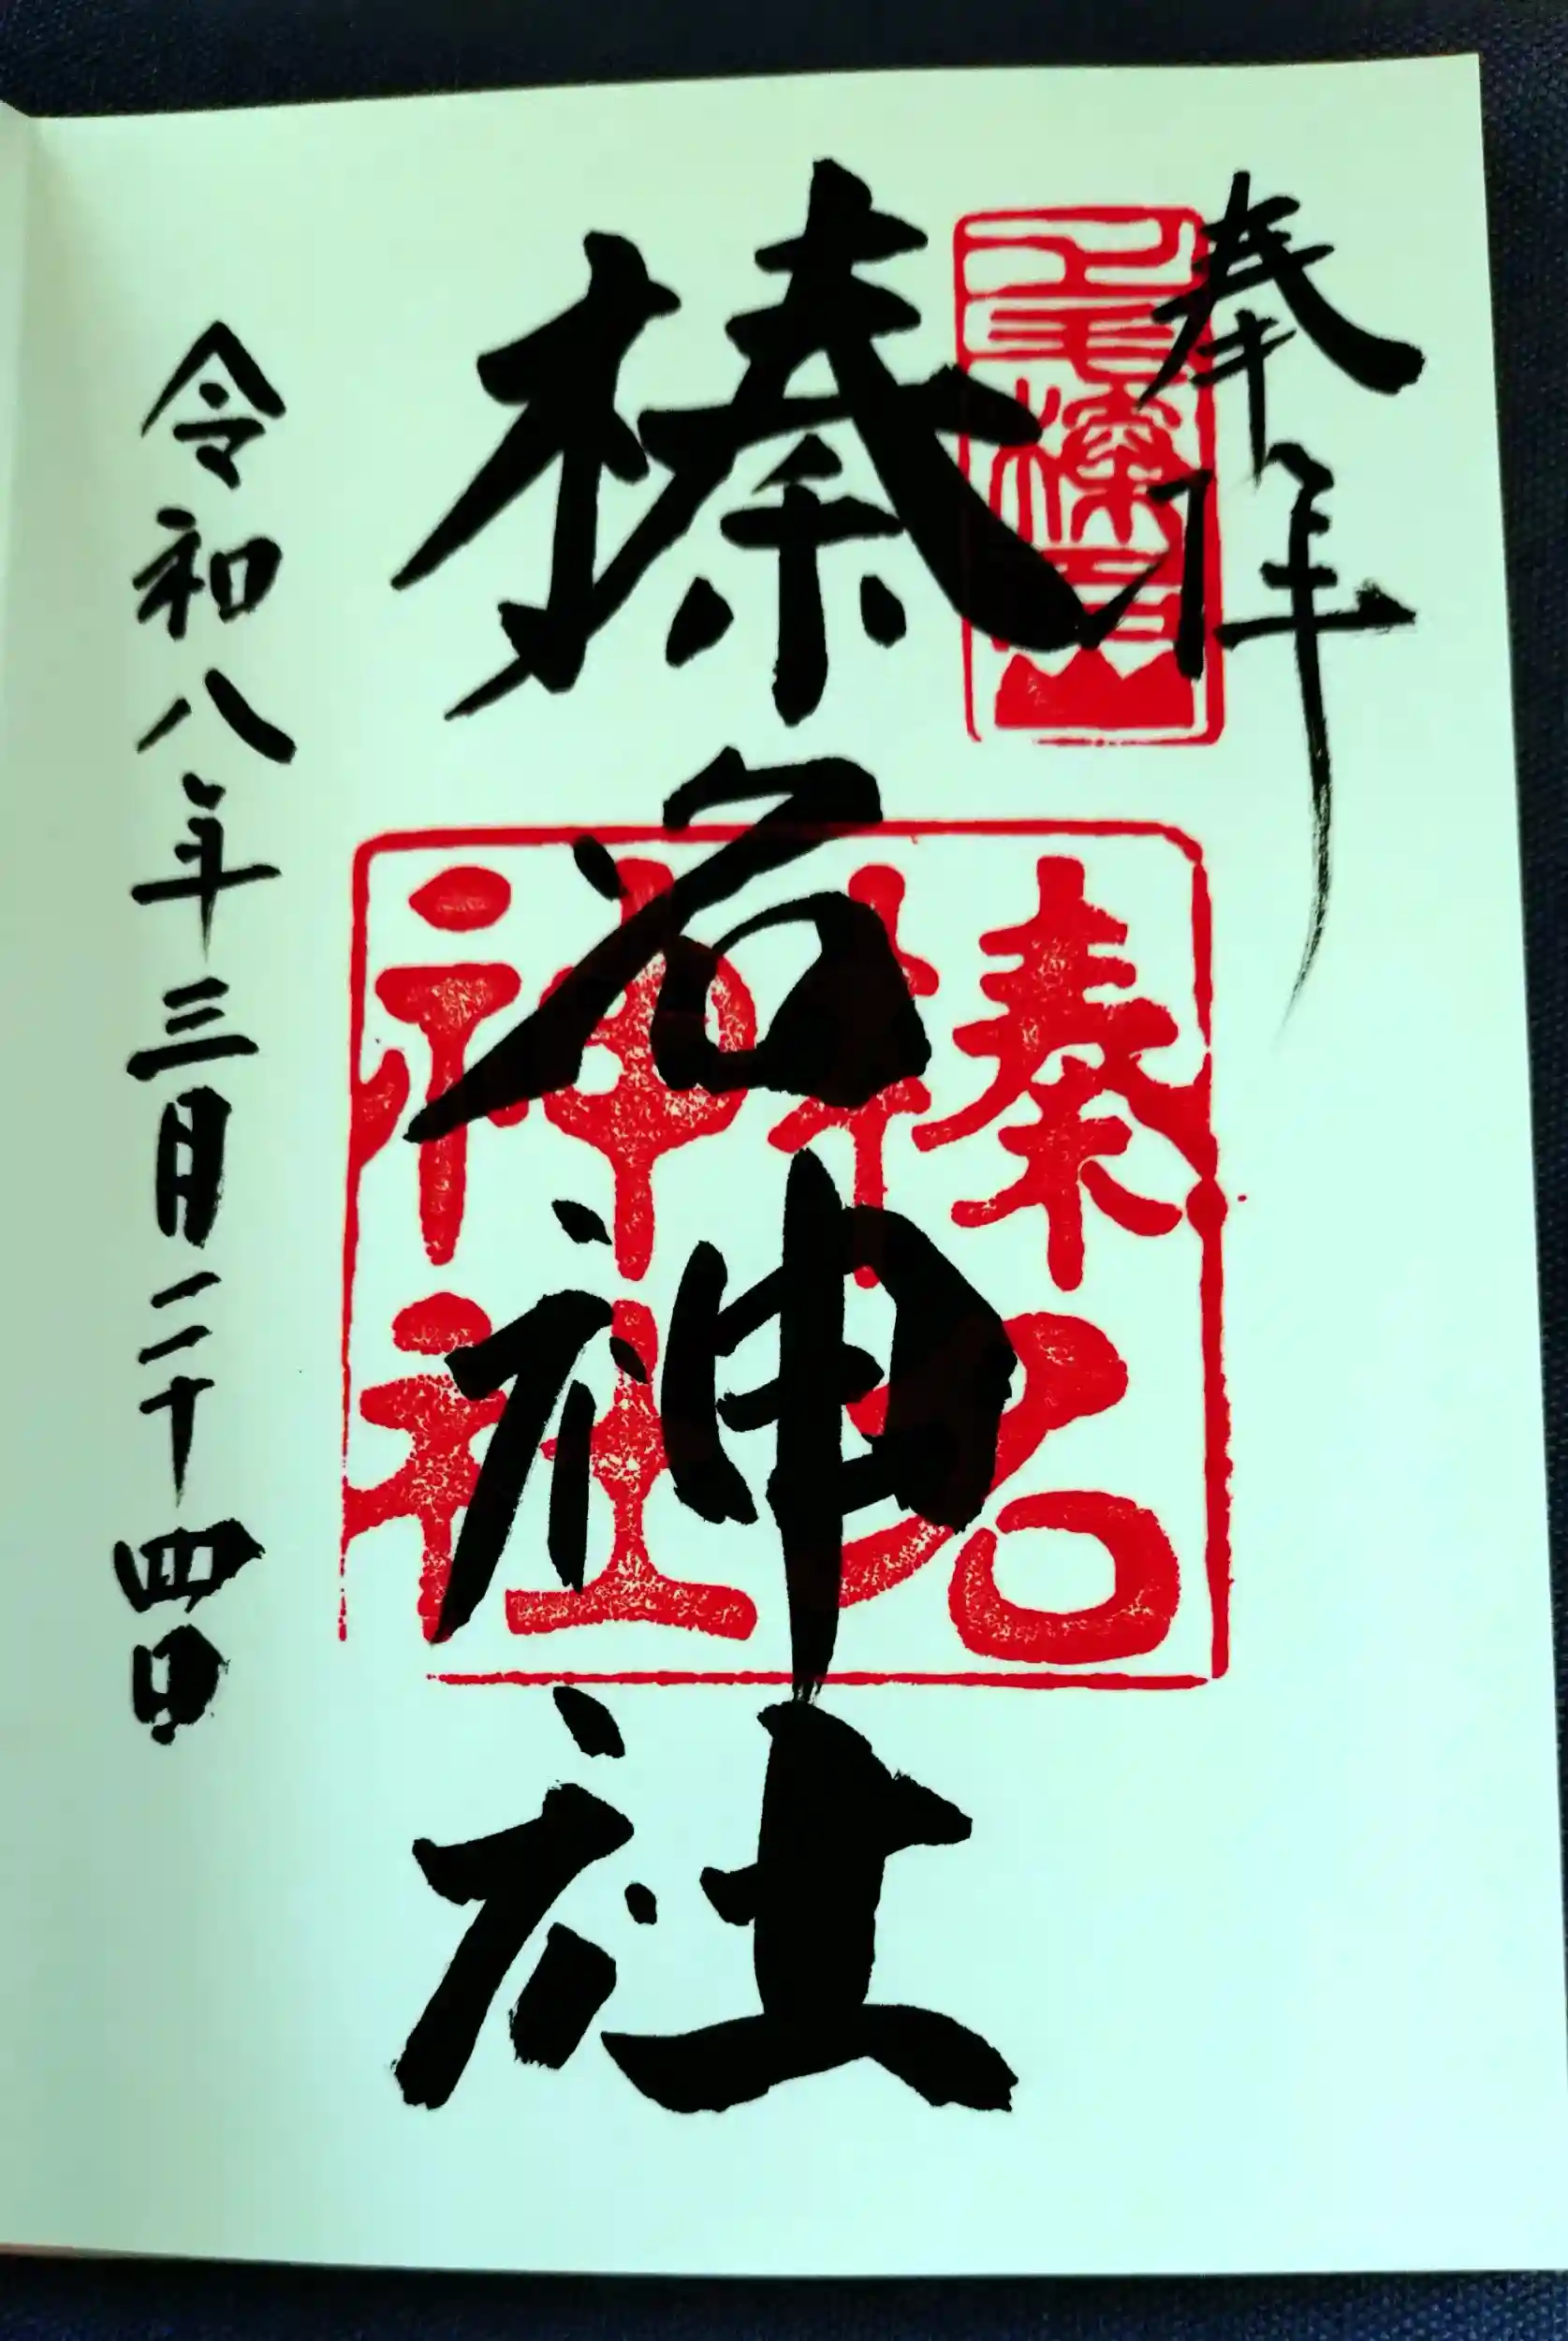 奉拝
上毛榛名山
榛名神社
榛名
神社
令和八年三月二十四日